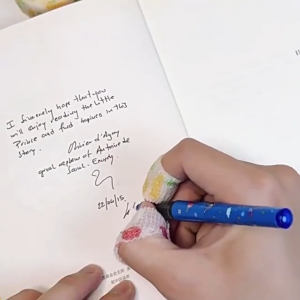 I sincerely hope that you
will enjoy reading the Little
Prince and find in this
story.
Olivier d'Agay
great nephew of Antoine de
Saint-Exupéry.
22/06/15